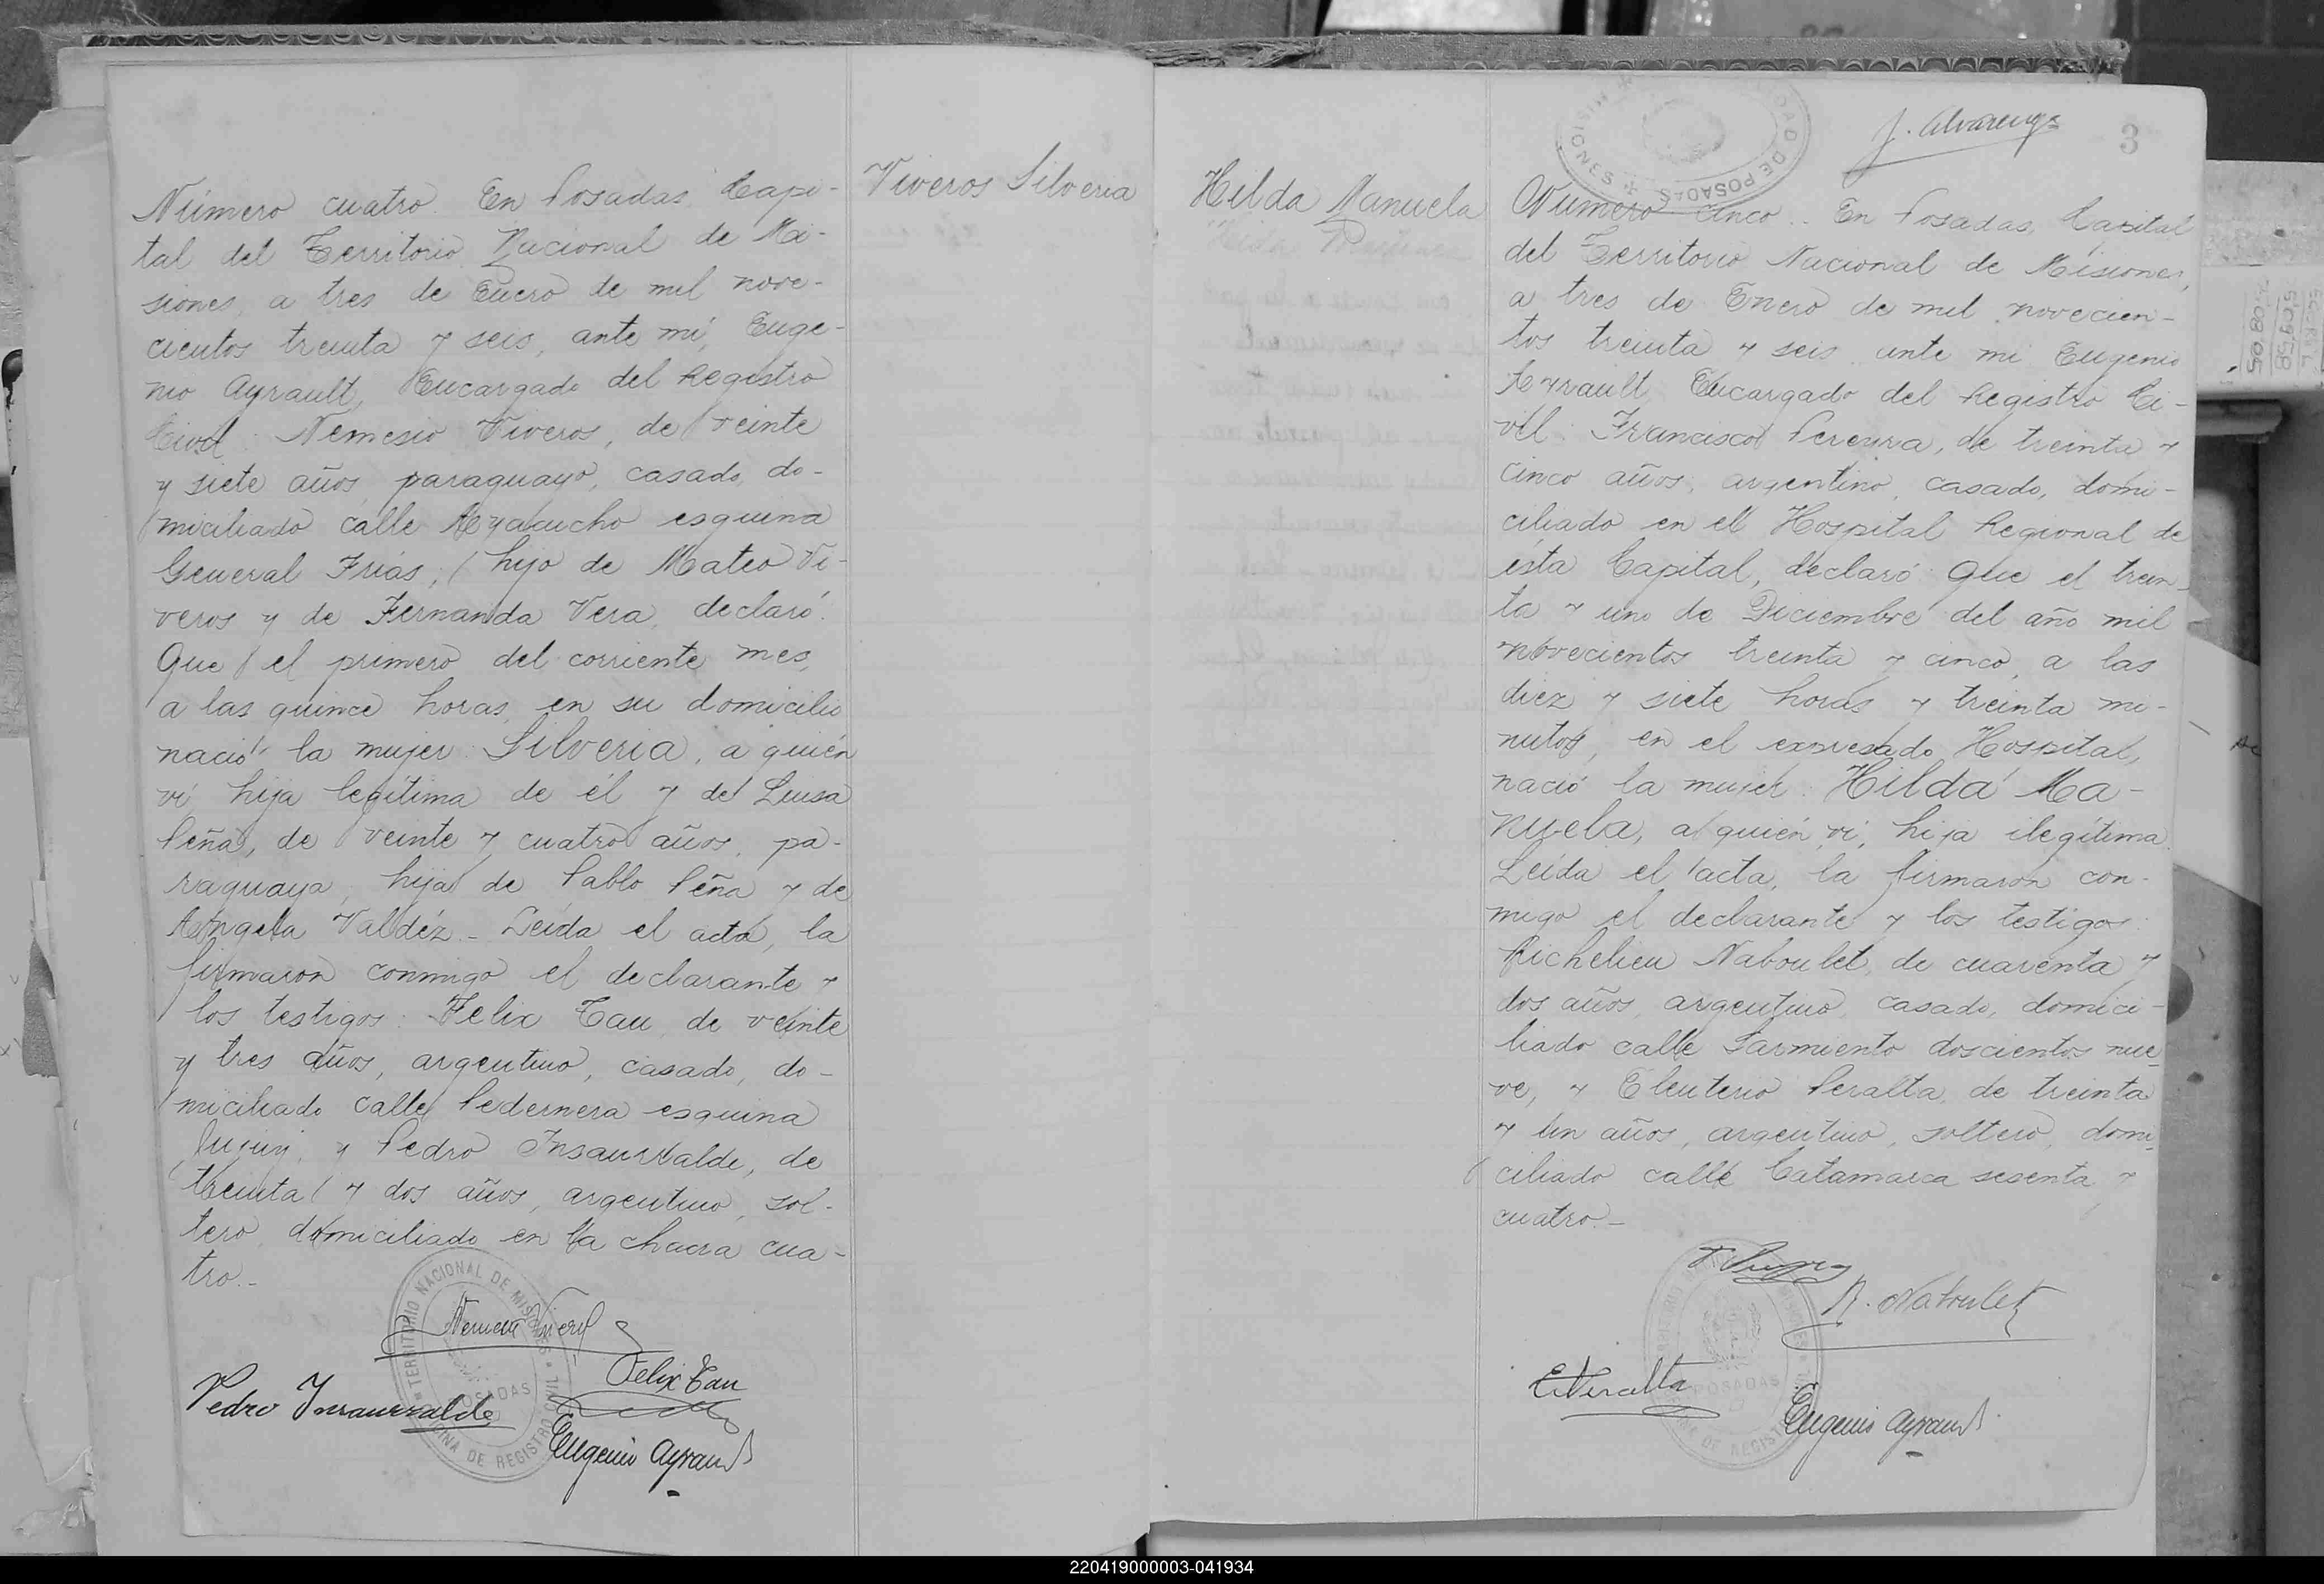 Viveros Silveria
Número cuatro. En Posadas Capi-
tal del Territorio Nacional de Mi-
siones, a tres de Enero de mil nove-
cientos treinta y seis, ante mí, Euge-
nio Ayrault, Encargado del Registro
Civil: Nemesio Viveros, de veinte
y siete años, paraguayo, casado, do-
miciliado calle Ayacucho esquina
General Frías, hijo de Mateo Vi-
veros y de Fernanda Vera, declaró:
Que el primero del corriente mes,
a las quince horas, en su domicilio
nació la mujer: Silveria, a quién
ví, hija legítima de él y de Luisa
Peña, de veinte y cuatro años, pa-
raguaya, hija de Pablo Peña y de
Angela Valdéz.- Leída el acta, la
firmaron conmigo el declarante y
los testigos: Felix Tau, de veinte
y tres años, argentino, casado, do-
miciliado calle Pedernera esquina
Jujuy, y Pedro Insaurralde, de
treinta y dos años, argentino, sol-
tero, domiciliado en la chacra cua-
tro.-
TERRITORIO NACIONAL DE MISIONES
POSADAS
OFICINA DE REGISTRO CIVIL
Felix Tau
Pedro Insaurralde
Eugenio Ayrault
J. Alvarenga
3
DE POSADAS
Hilda Manuela
Número cinco.. En Posadas, Capital
del Territorio Nacional de Misiones,
a tres de Enero de mil novecien-
tos treinta y seis, ante mi Eugenio
Ayrault, Encargado del Registro Ci-
vil: Francisco Pereyra, de treinta y
cinco años, argentino, casado, domi-
ciliado en el Hospital Regional de
esta Capital, declaró: Que el trein-
ta y uno de Diciembre del año mil
novecientos treinta y cinco, a las
diez y siete horas y treinta mi-
nutos, en el expresado Hospital,
nació la mujer: Hilda Ma-
nuela, a quién ví, hija ilegítima.
Leída el acta, la firmaron con-
migo el declarante y los testigos:
Richelieu Naboulet, de cuarenta y
dos años, argentino, casado, domici-
liado calle Sarmiento doscientos nue-
ve, y Eleuterio Peralta, de treinta
y un años, argentino, soltero, domi-
ciliado calle Catamarca sesenta y
cuatro.-
R. Naboulet
E. Peralta
POSADAS
Eugenio Ayrault
220419000003-041934